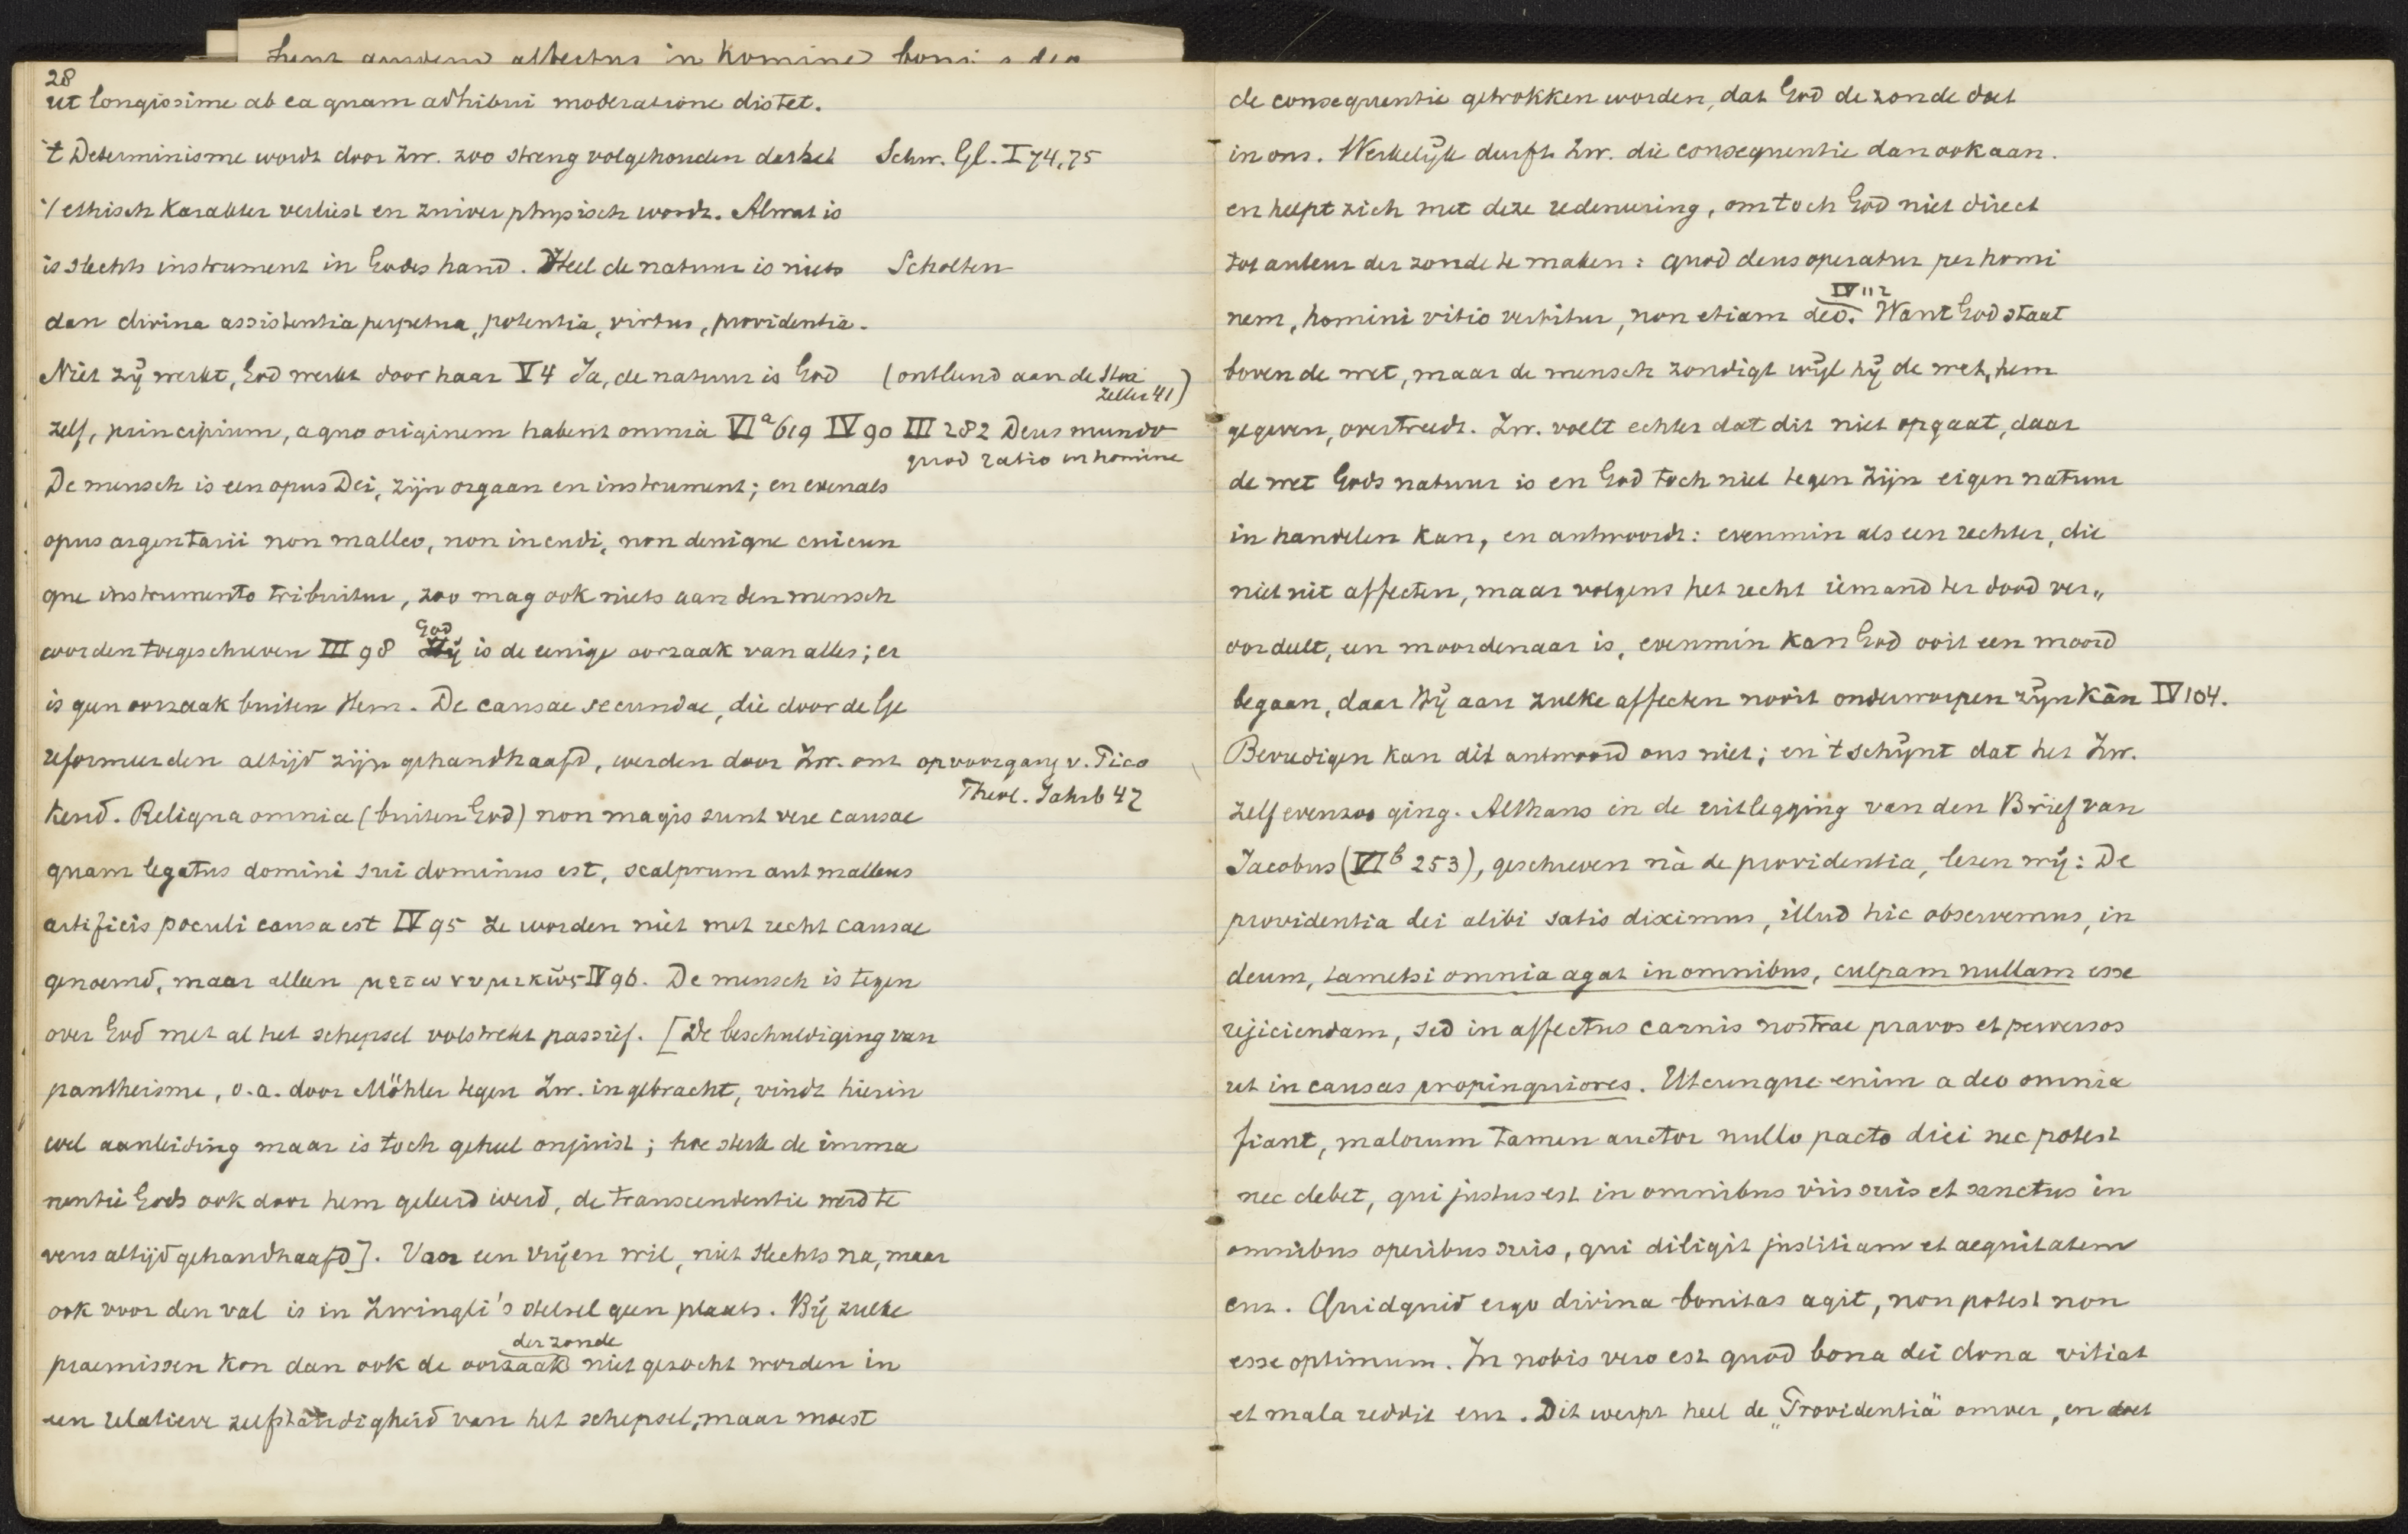 sunt quidem affectus in homine boni a deo
28
ut longissime ab ea quam adhibui moderatione distet.
't Determinisme wordt door Zw. zoo streng volgehouden dat het
Schw. Gl. I 74,75
't ethisch karakter verliest en zuiver physisch wordt. Al wat is
is slechts instrument in Gods hand. Heel de natuur is niets
Scholten
dan divina assistentia perpetua, potentia, virtus, providentia.
Niet zij werkt, God werkt door haar V 4 Ja, de natuur is God
(ontleend aan de Stoa
Zeller 41)
zelf, principium, a quo originem habent omnia VIᵃ 619 IV 90 III 282 Deus mundo
quod ratio in homine
De mensch is een opus Dei, zijn orgaan en instrument; en evenals
opus argentarii non malleo, non incudi, non denique cuicun
que instrumento tribuitur, zoo mag ook niets aan den mensch
worden toegeschreven III 98 God is de eenige oorzaak van alles; er
is geen oorzaak buiten Hem. De causae secundae, die door de Ge
reformeerden altijd zijn gehandhaafd, werden door Zw. ont
op voorgang v. Pico
Theol. Jahrb 42
kend. Reliqua omnia (buiten God) non magis sunt vere causae
quam legatus domini sui dominus est, scalprum aut malleus
artificis poculi causa est IV 95 Ze worden niet met recht causae
genoemd, maar alleen μετωνυμικῶς IV 96. De mensch is tegen
over God met al het schepsel volstrekt passief. [De beschuldiging van
pantheisme, o.a. door Möhler tegen Zw. ingebracht, vindt hierin
wel aanleiding maar is toch geheel onjuist; hoe sterk de imma
nentie Gods ook door hem geleerd werd, de transcendentie werd te
vens altijd gehandhaafd]. Voor een vrijen wil, niet slechts na, maar
ook voor den val is in Zwingli's stelsel geen plaats. Bij zulke
der zonde
praemissen kon dan ook de oorzaak niet gezocht worden in
een relatieve zelfstandigheid van het schepsel, maar moest
de consequentie getrokken worden, dat God de zonde doet
in ons. Werkelijk durft Zw. die consequentie dan ook aan.
en helpt zich met deze redeneering, om toch God niet direct
tot auteur der zonde te maken: quod deus operatur per homi
IV 112
nem, homini vitio vertitur, non etiam deo. Want God staat
boven de wet, maar de mensch zondigt wijl hij de wet, hem
gegeven, overtreedt. Zw. voelt echter dat dit niet opgaat, daar
de wet Gods natuur is en God toch niet tegen zijn eigen natuur
in handelen kan, en antwoordt: evenmin als een rechter, die
niet uit affecten, maar volgens het recht iemand ter dood ver„
oordeelt, een moordenaar is, evenmin kan God ooit een moord
begaan, daar Hij aan zulke affecten nooit onderworpen zijn kan IV 104.
Bevredigen kan dit antwoord ons niet; en 't schijnt dat het Zw.
zelf evenzoo ging. Althans in de uitlegging van den Brief van
Jacobus (VIᵇ 253), geschreven nà de providentia, lezen wij: De
providentia dei alibi satis diximus, illud hic observemus, in
deum, tametsi omnia agat in omnibus, culpam nullam esse
rejiciendam, sed in affectus carnis nostrae pravos et perversos
ut in causas propinquiores. Utcunque enim a deo omnia
fiant, malorum tamen auctor nullo pacto dici nec potest
nec debet, qui justus est in omnibus viis suis et sanctus in
omnibus operibus suis, qui diligit justitiam et aequitatem
enz. Quidquid ergo divina bonitas agit, non potest non
esse optimum. In nobis vero est quod bona dei dona vitiat
et mala reddit enz. Dit werpt heel de „Providentia" omver, en doet